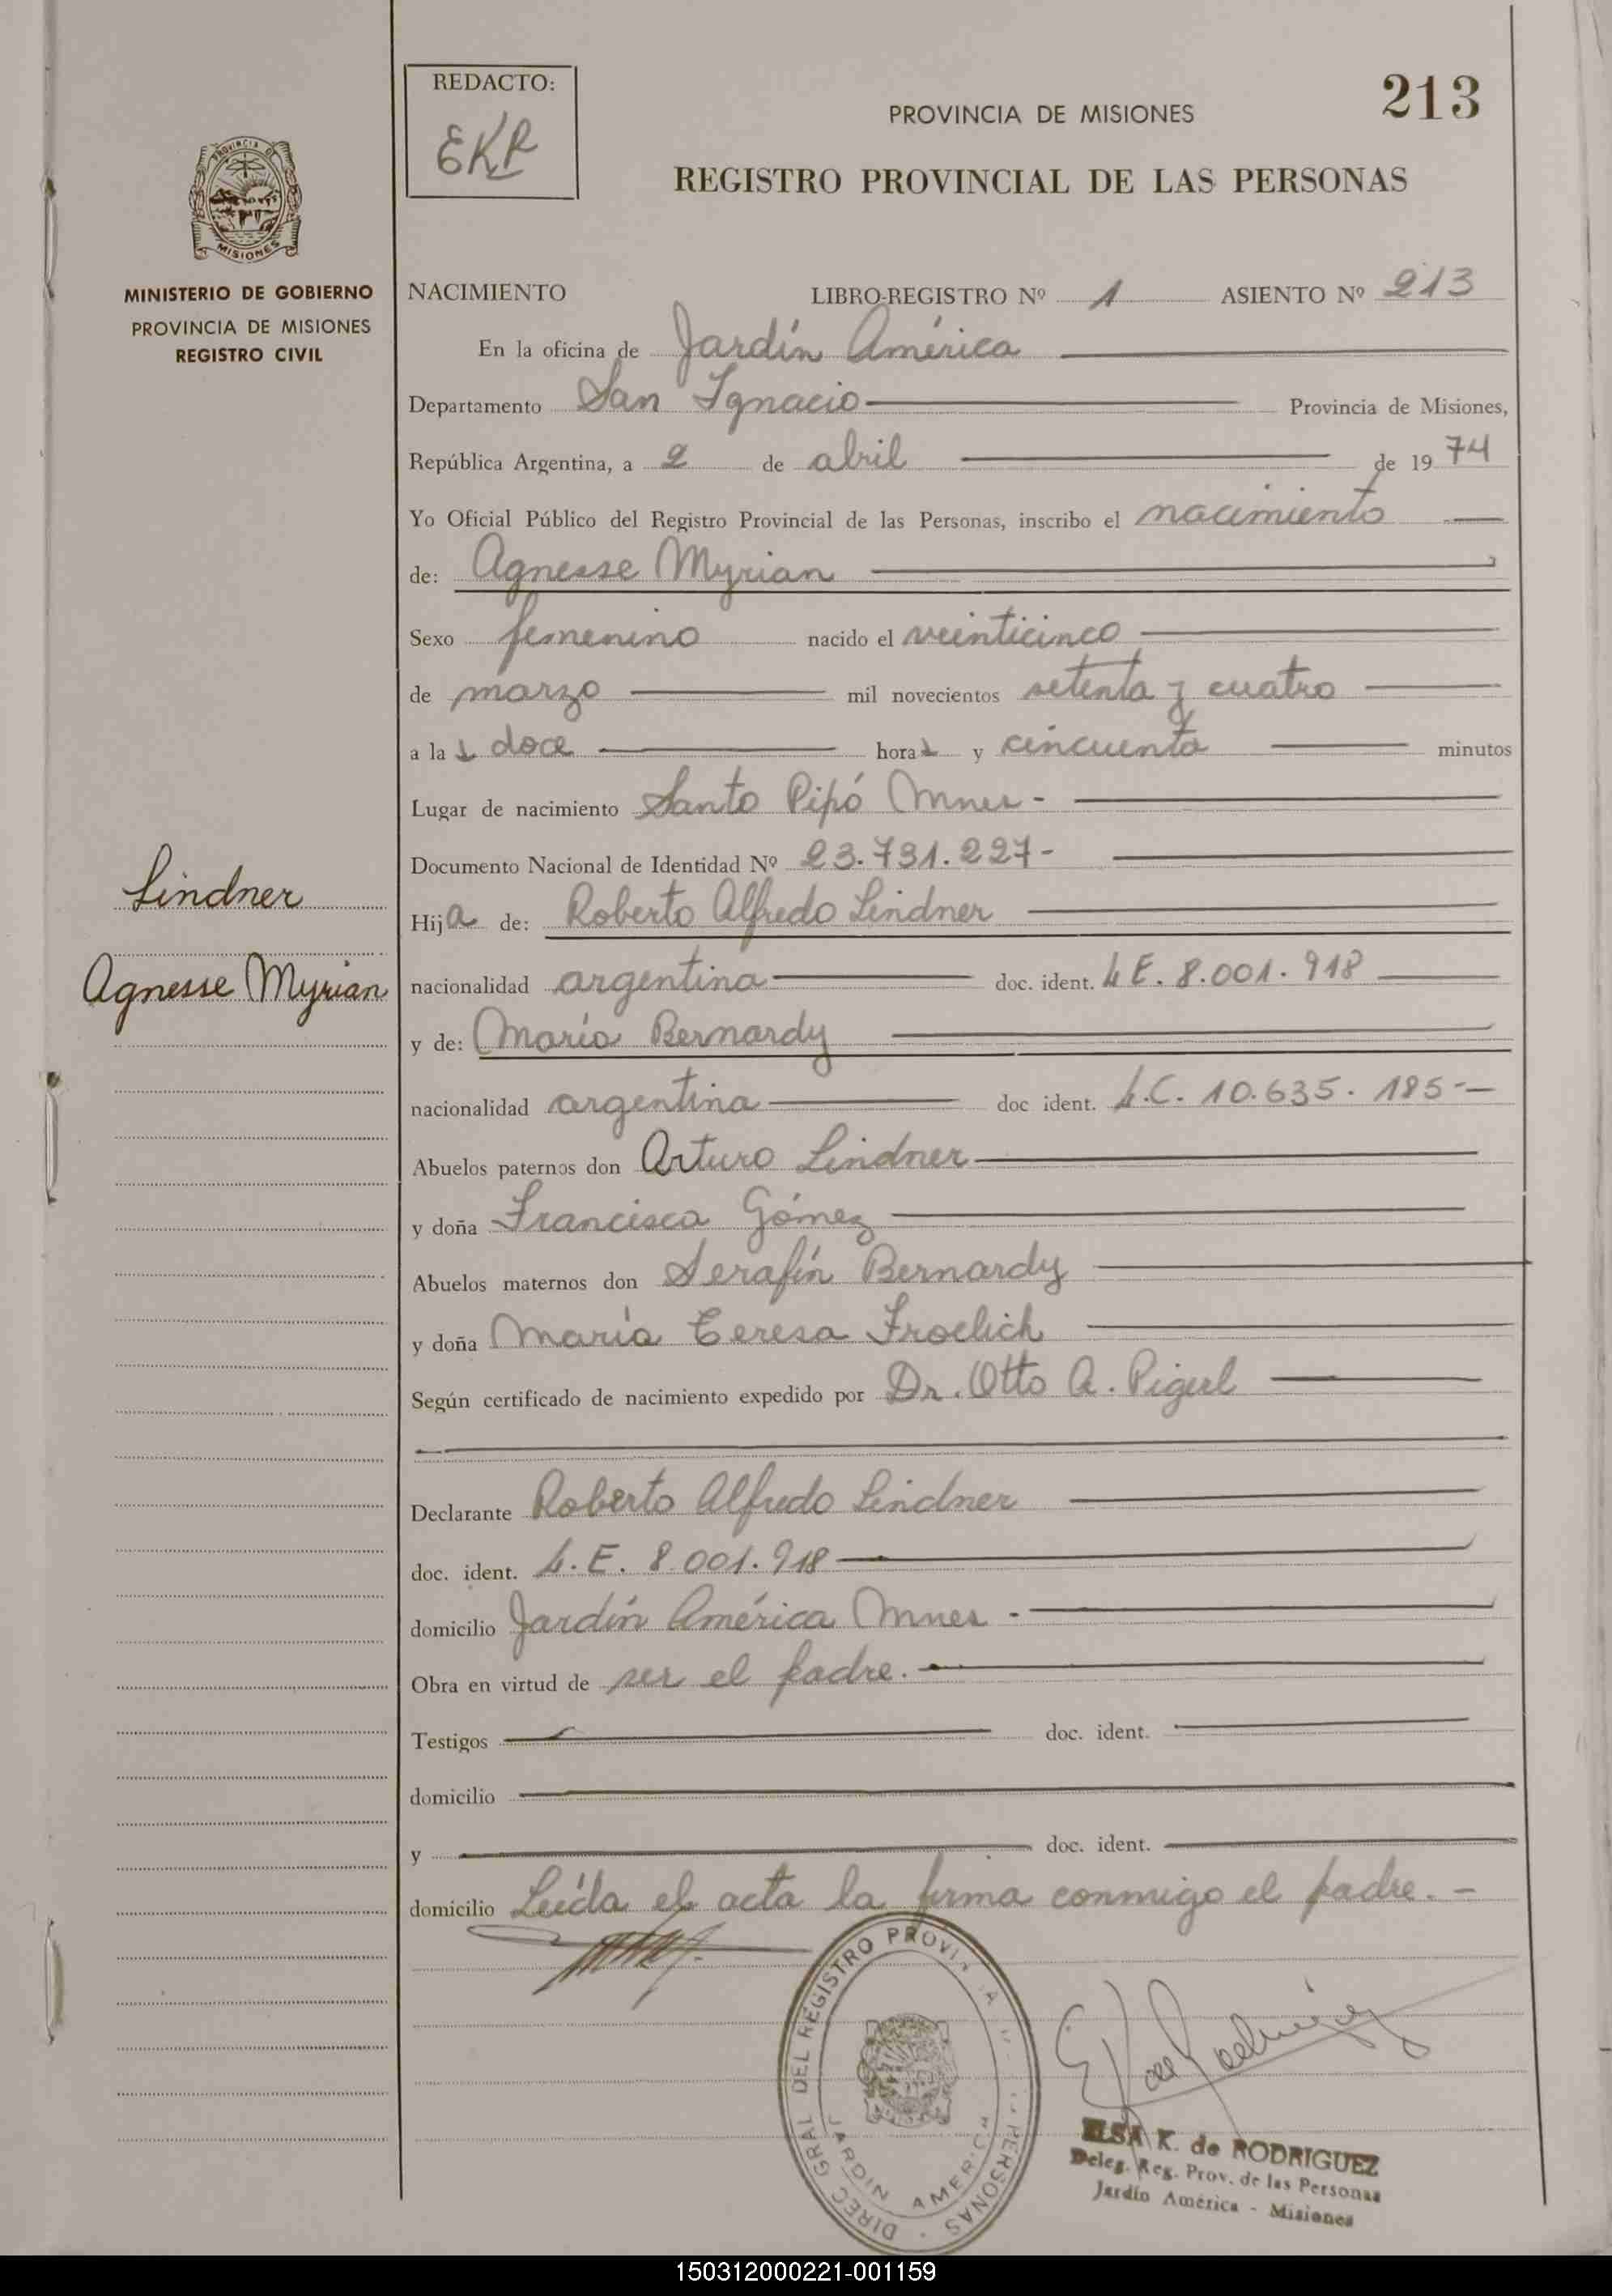 REDACTO:
EKR
PROVINCIA DE MISIONES
213
REGISTRO PROVINCIAL DE LAS PERSONAS
PROVINCIA DE
MISIONES
MINISTERIO DE GOBIERNO
PROVINCIA DE MISIONES
REGISTRO CIVIL
NACIMIENTO LIBRO-REGISTRO Nº 1 ASIENTO Nº 213
En la oficina de Jardín América
Departamento San Ignacio Provincia de Misiones,
República Argentina, a 2 de abril de 1974
Yo Oficial Público del Registro Provincial de las Personas, inscribo el nacimiento
de: Agnesse Myrian
Sexo femenino nacido el veinticinco
de marzo mil novecientos setenta y cuatro
a las doce horas y cincuenta minutos
Lugar de nacimiento Santo Pipó Mnes -
Documento Nacional de Identidad Nº 23.731.227-
Hija de: Roberto Alfredo Lindner
nacionalidad argentina doc. ident. L E. 8.001.918
y de: María Bernardy
nacionalidad argentina doc ident. L.C. 10.635.185-
Abuelos paternos don Arturo Lindner
y doña Francisca Gómez
Abuelos maternos don Serafín Bernardy
y doña María Teresa Froelich
Según certificado de nacimiento expedido por Dr. Otto A.
Declarante Roberto Alfredo Lindner
doc. ident. L.E. 8.001.918
domicilio Jardín América Mnes -
Obra en virtud de ser el padre.
Testigos doc. ident.
domicilio
y doc. ident.
domicilio Leída el acta la firma conmigo el padre. -
Lindner
Agnesse Myrian
DIREC GRAL DEL REGISTRO PERSONAS
JARDIN AMERICA
E K de Rodriguez
ELSA K. de RODRIGUEZ
Deleg. Reg. Prov. de las Personas
Jardín América - Misiones
150312000221-001159